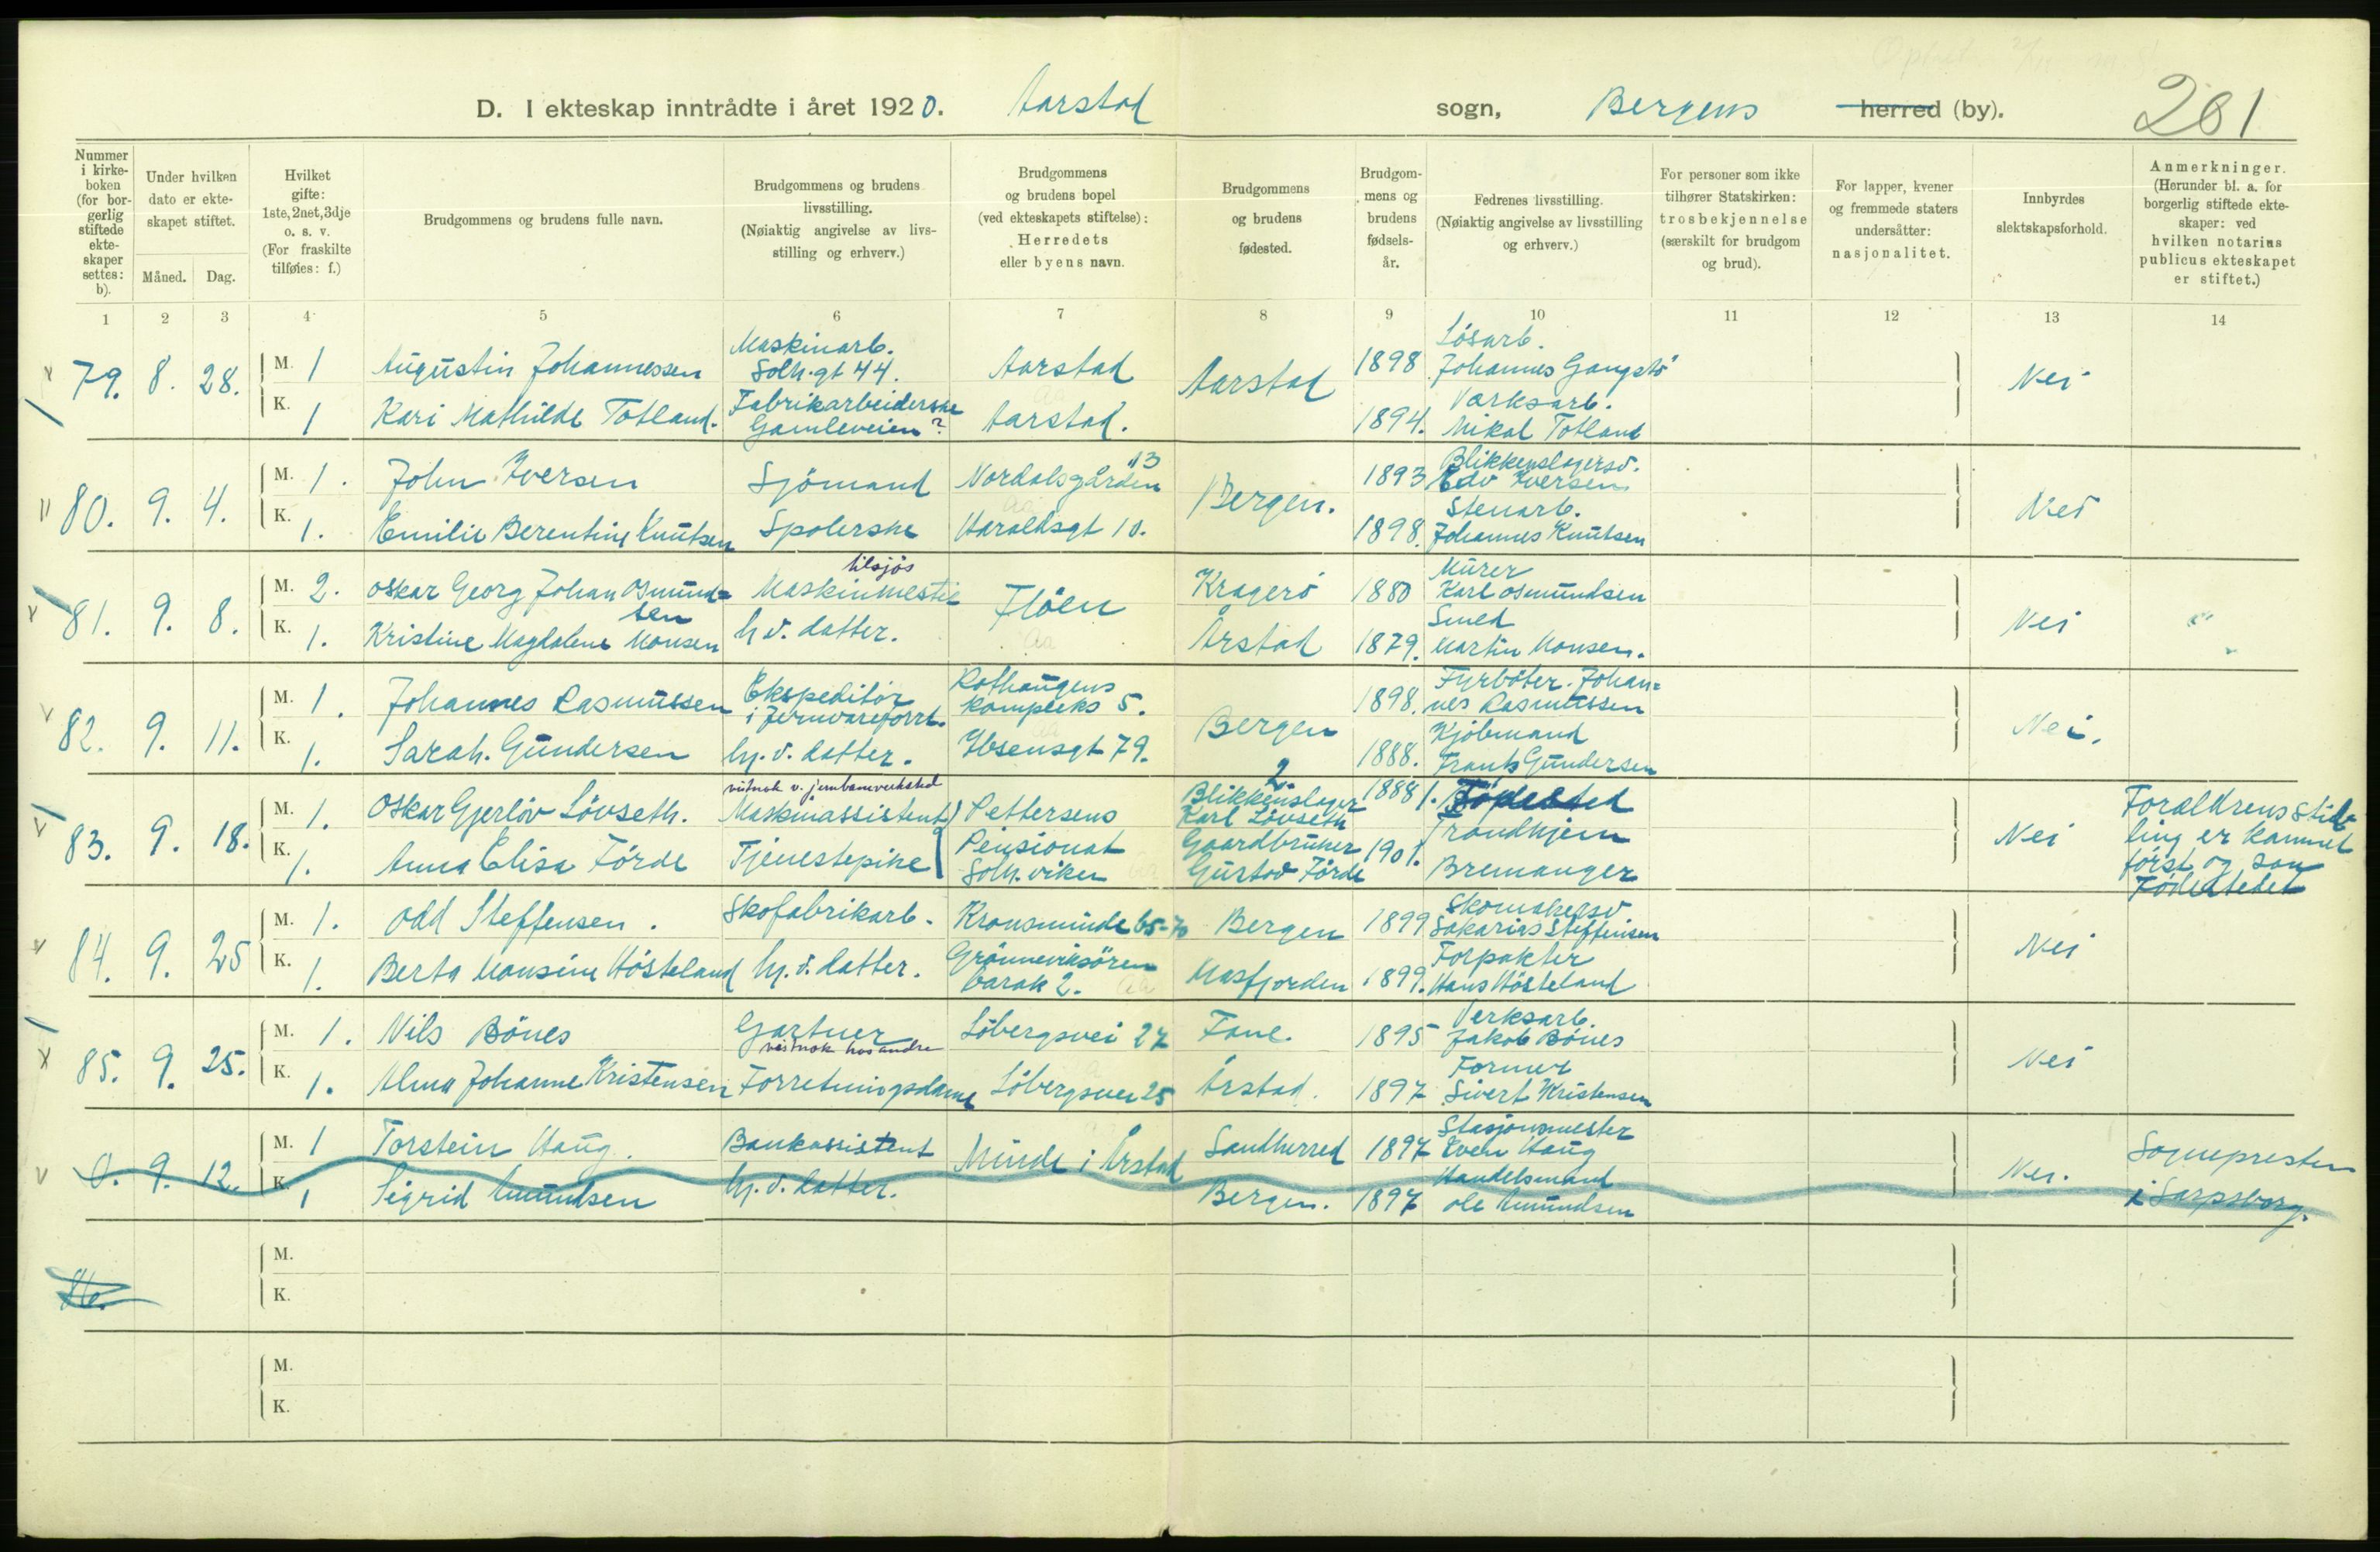 D. I ekteskap inntrådte i året 1920. Aarstad sogn, Bergens herred (by). 201
Nummer i kirke-boken (for bor-gerlig stiftede ekte-skaper settes: b).
Under hvilken dato er ekte-skapet stiftet.
Måned. Dag.
Hvilket gifte: 1ste, 2net, 3dje o. s. v. (For fraskilte tilføies: f.)
Brudgommens og brudens fulle navn.
Brudgommens og brudens livsstilling. (Nøiaktig angivelse av livs-stilling og erhverv.)
Brudgommens og brudens bopel (ved ekteskapets stiftelse): Herredets eller byens navn.
Brudgommens og brudens fødested.
Brudgom-mens og brudens fødsels-år.
Fedrenes livsstilling. (Nøiaktig angivelse av livsstilling og erhverv.)
For personer som ikke tilhører Statskirken: trosbekjennelse (særskilt for brudgom og brud).
For lapper, kvener og fremmede staters undersåtter: nasjonalitet.
Innbyrdes slektskapsforhold.
Anmerkninger. (Herunder bl. a. for borgerlig stiftede ekte-skaper: ved hvilken notarius publicus ekteskapet er stiftet.)
1 2 3 4 5 6 7 8 9 10 11 12 13 14
79. 8. 28.
M. 1 Augustin Johannessen Maskinarb. Solh.gt 44. Aarstad Aarstad 1898 Løsarb. Johannes Gangstö Nei
K. 1 Kari Mathilde Totland. Fabrikarbeiderske Gamleveien? Aarstad. 1894. Værksarb. Mikal Totland
80. 9. 4.
M. 1. John Iversen Sjömand Nordalsgården 13 Bergen. 1893 Blikkenslagersv. Edv Iversen Nei
K. 1. Emilie Berentine Knutsen Spolerske Haraldsgt 10. 1898. Stenarb. Johannes Knutsen
81. 9. 8.
M. 2. Oskar Georg Johan Osmund=sen Maskinmester tilsjös Flöen Kragerö 1880 Murer Karl Osmundsen Nei
K. 1. Kristine Magdalene Monsen h v. datter. Årstad 1879. Smed Martin Monsen.
82. 9. 11.
M. 1. Johannes Rasmussen Ekspeditör i Jernvareforr. Rothaugens kompleks 5. Bergen 1898. Fyrböter. Johan=nes Rasmussen Nei.
K. 1. Sarah. Gundersen hj. v. datter. Ibsensgt 79. 1888. Kjöbmand Frantz Gundersen
83. 9. 18.
M. 1. Oskar Gjerlöv Lövseth. Maskinassistent vistnok v. jernbaneverksted Pettersens Pensionat Solh.viken 2 Blikkenslager Karl Lövseth 1888 1. Födested Trondhjem Nei Foreldrenes stilling er kommet först og saa Födestedet
K. 1. Anna Elisa Förde Tjenestepike Gaardbruker Gustav Förde 1901. Bremanger
84. 9. 25
M. 1. Odd Steffensen. Skofabrikarb. Kronsminde 65-70 Bergen 1899 Skomakersv Sakarias Steffensen Nei
K. 1. Berta Monsine Hösteland hj. v. datter. Grönneviksören barak 2. Masfjorden 1899. Forpakter Hans Hösteland
85. 9. 25.
M. 1. Nils Bönes Gartner vistnok hos andre Löbergsvei 27 Fane. 1895 Verksarb. Jakob Bönes Nei
K. 1. Alma Johanne Kristensen Forretningsdame Löbergsvei 25 Årstad. 1897 Former Sivert Kristensen
0. 9. 12.
M. 1 Torstein Haug. Bankassistent Minde i Årstad Sandherred 1897 Stasjonsmester Even Haug Nei. Sognepresten i Sarpsborg.
K. 1 Sigrid Amundsen hj. v. datter. Bergen. 1897 Handelsmand Ole Amundsen
86.
M.
K.
M.
K.